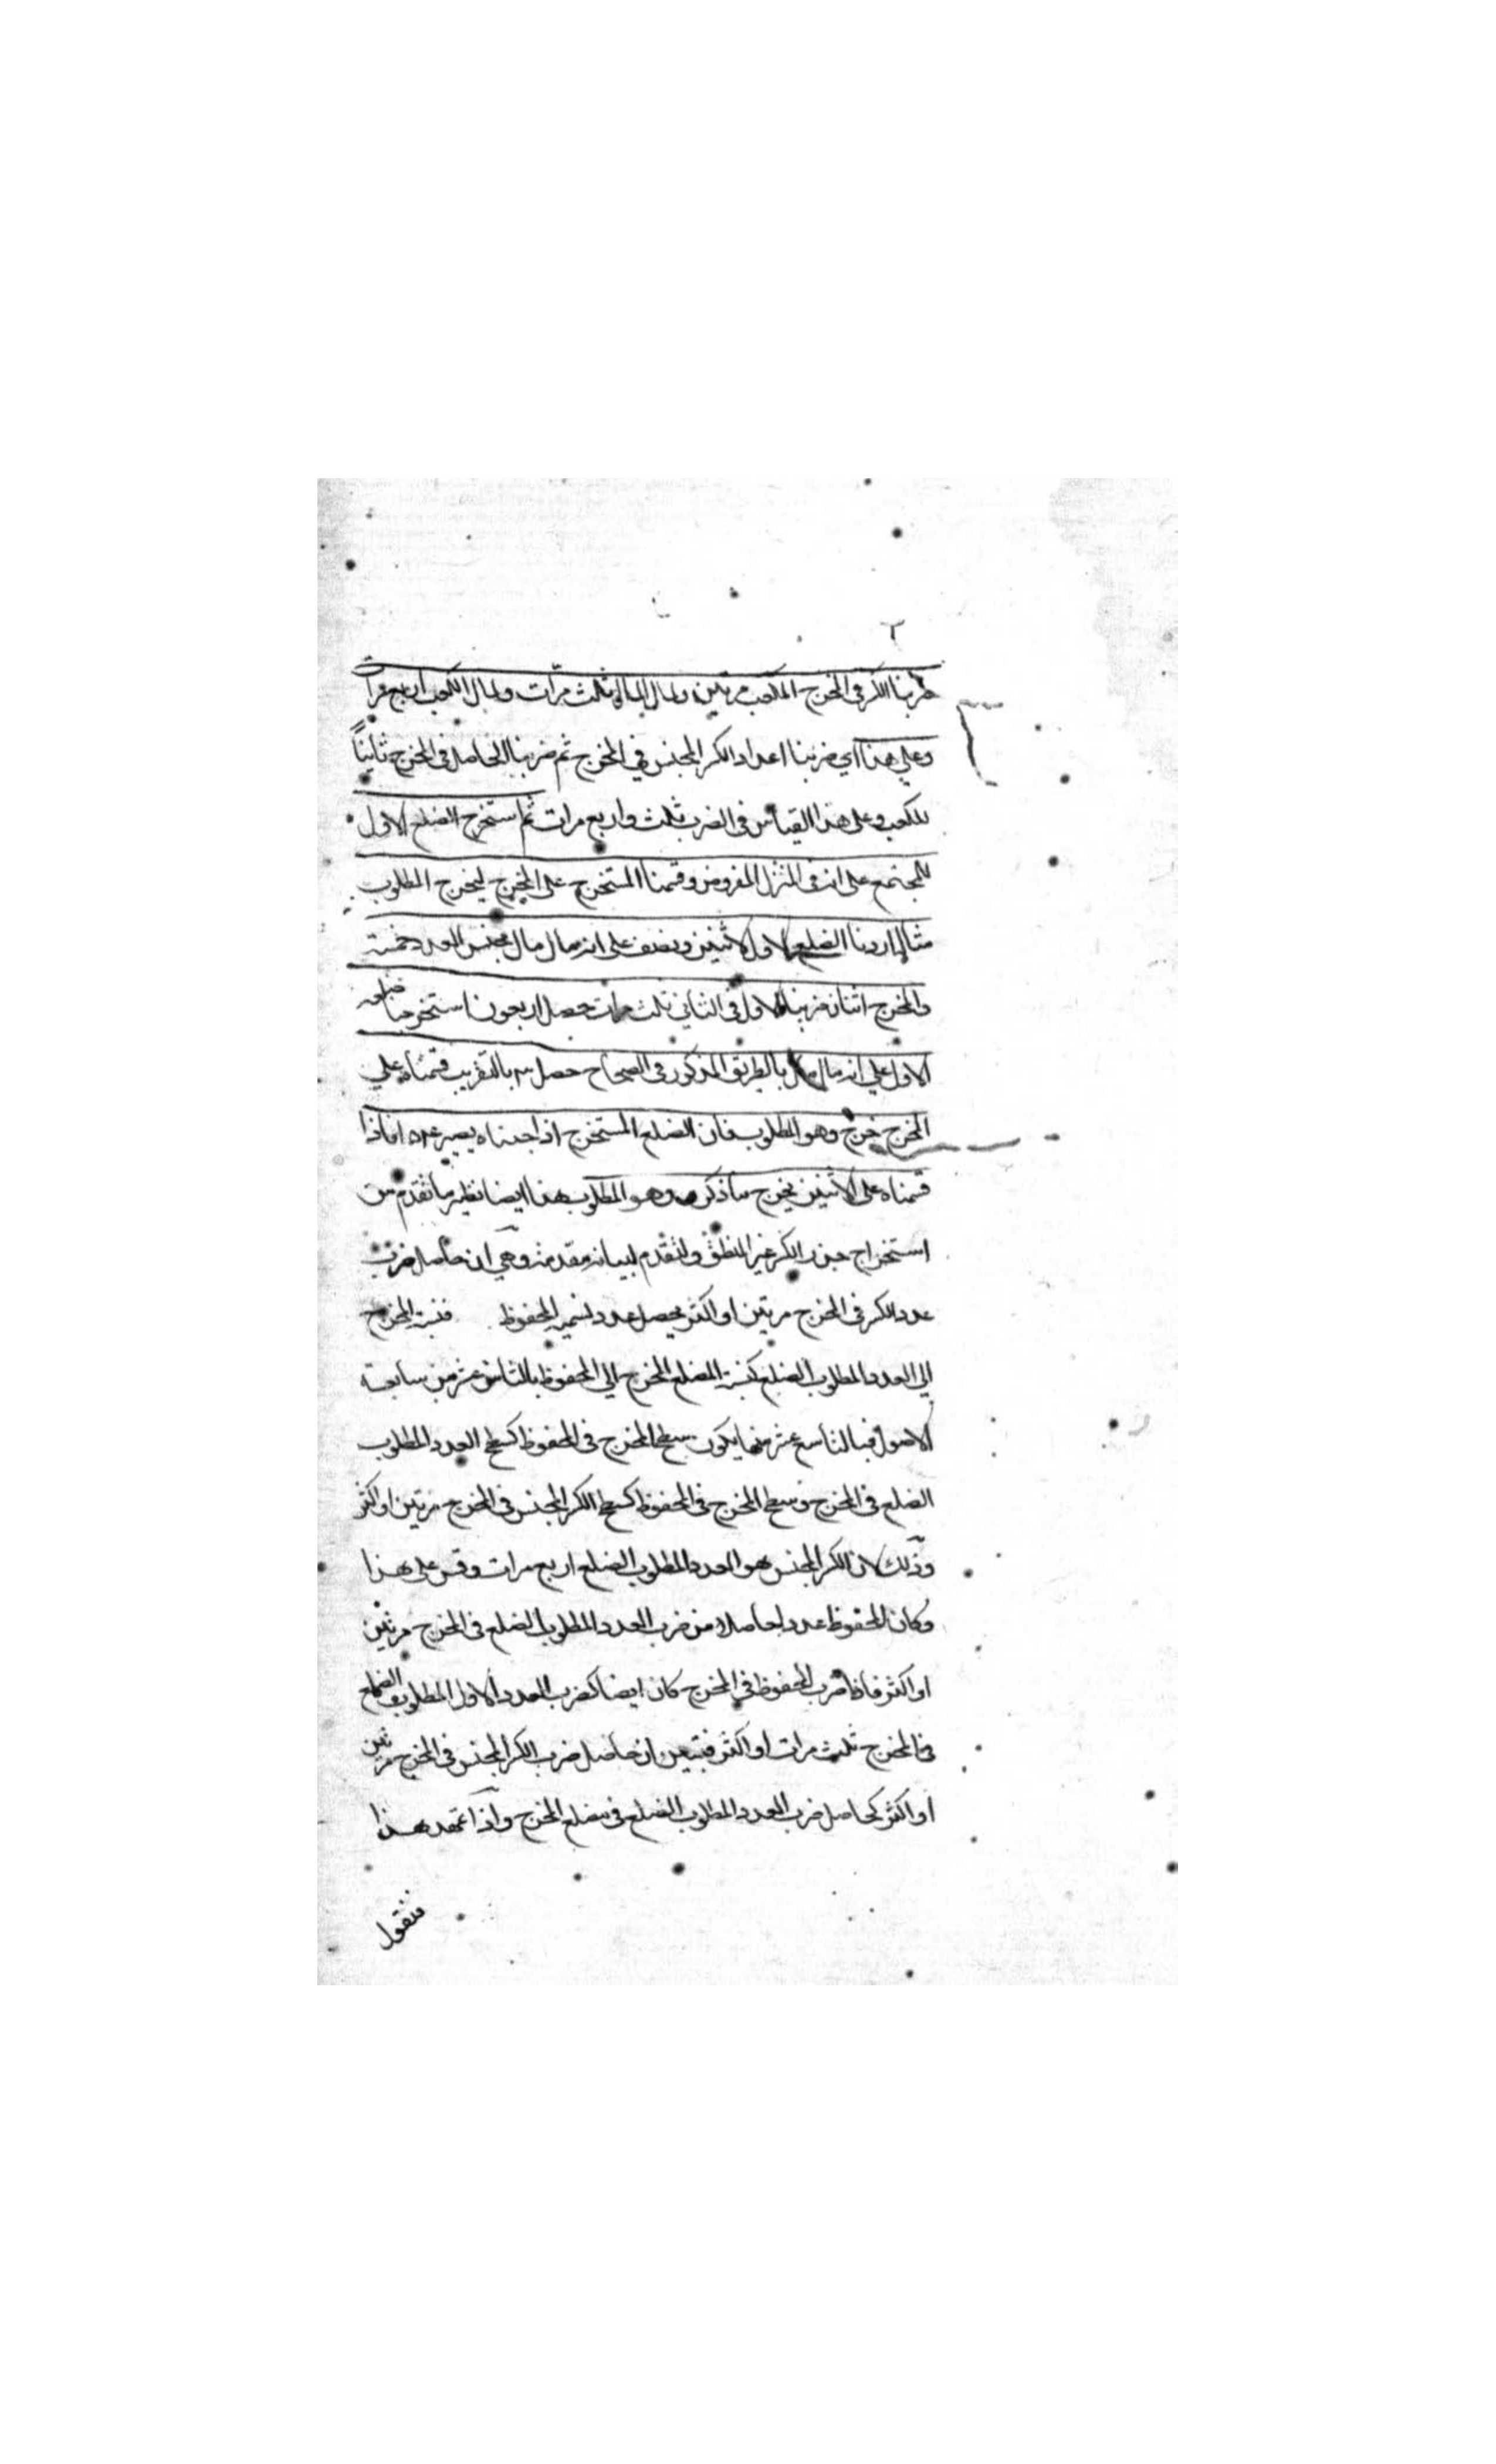 ضربنا الكسر فى المخرج المكعب مرتين ولمال المال ثلث مرّات ولمال الكعب اربع مرات
وعلي هذا اي ضربنا اعداد الكسر المجنس في المخرج ثم ضربنا الحاصل فى المخرج ثانياً
للكعب وعلى هذا القياس فى الضرب ثلث واربع مرات ثم استخرج الضلع الاول
للمجتمع على انه فى المنزل المفروض وقسمنا المستخرج على المخرج ليخرج المطلوب
مثاله اردنا الضلع الاول لاثنين ونصف على انه مال مال مجنس العدد خمسة
والمخرج اثنان ضربنا الاول فى الثاني ثلث مرات حصل اربعون استخرجنا ضلعه
الاول علي انه مال مال بالطريق المذكور فى الصحاح حصل بالتقريب قسمناه علي
المخرج خرج وهو المطلوب فان الضلع المستخرج اذا جنسناه يصير عددا فاذا
قسمناه على الاثنين يخرج ما ذكر وهو المطلوب هذا ايضا نظير ما تقدم من
استخراج جذر الكسر غير المنطق ولنقدم لبيانه مقدمة وهي ان حاصل ضرب
عدد الكسر فى المخرج مرتين او اكثر يحصل عدد لنسميه المحفوظ فنسبة المخرج
الي العدد المطلوب الضلع كنسبة المضلع المخرج الي المحفوظ بالثامن عشر من سابعة
الاصول فبالتاسع عشر منها يكون سطح المخرج فى المحفوظ كسطح العدد المطلوب
الضلع فى المخرج وسطح المخرج فى المحفوظ كسطح الكسر المجنس فى المخرج مرتين او اكثر
وذلك لان الكسر المجنس هو العدد المطلوب الضلع اربع مرات وقس على هذا
وكان المحفوظ عددا حاصلا من ضرب العدد المطلوب الضلع فى المخرج مرتين
او اكثر فاذا ضرب المحفوظ فى المخرج كان ايضا كضرب العدد الاول المطلوب الضلع
فى المخرج ثلث مرات او اكثر فتبين ان حاصل ضرب الكسر المجنس فى المخرج مرتين
او اكثر كحاصل ضرب العدد المطلوب الضلع فى مضلع المخرج واذا تمهد هذا
فنقول